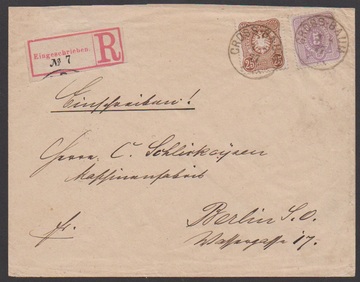 Eingeschrieben.
№ 7
R
GROSS-BAUM
25
GROSS-BAUM
5
Einschreiben!
Herrn C. Schlickeysen
Maschinenfabrik
Berlin S.O.
Wassergasse 17.
fr.